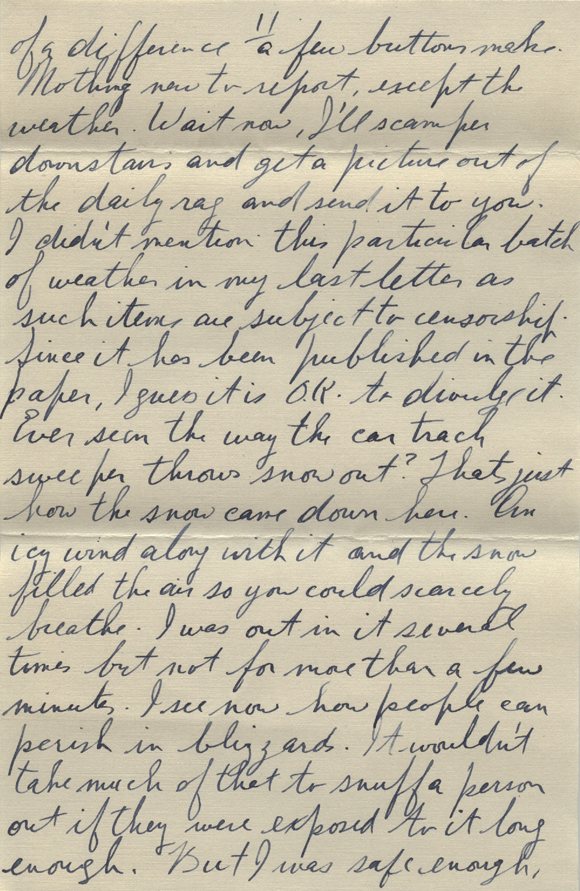 of a difference "a few buttons make.
Nothing new to report, except the
weather. Wait now, I'll scamper
downstairs and get a picture out of
the daily rag and send it to you.
I didn't mention this particular batch
of weather in my last letter as
such items are subject to censorship.
Since it has been published in the
paper, I guess it is O.K. to divulge it.
Ever seen the way the car track
sweeper throws snow out? Thats just
how the snow came down here. An
icy wind along with it and the snow
filled the air so you could scarcely
breathe. I was out in it several
times but not for more than a few
minutes. I see now how people can
perish in blizzards. It wouldn't
take much of that to snuff a person
out if they were exposed to it long
enough. But I was safe enough,